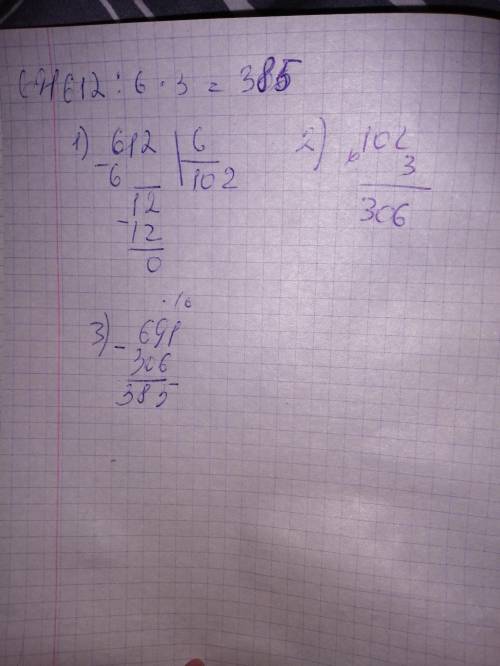 691-612:6·3=385
1) 612 | 6
-6 102
12
-12
0
2) 102
3
306
3) ·10
- 691
306
385